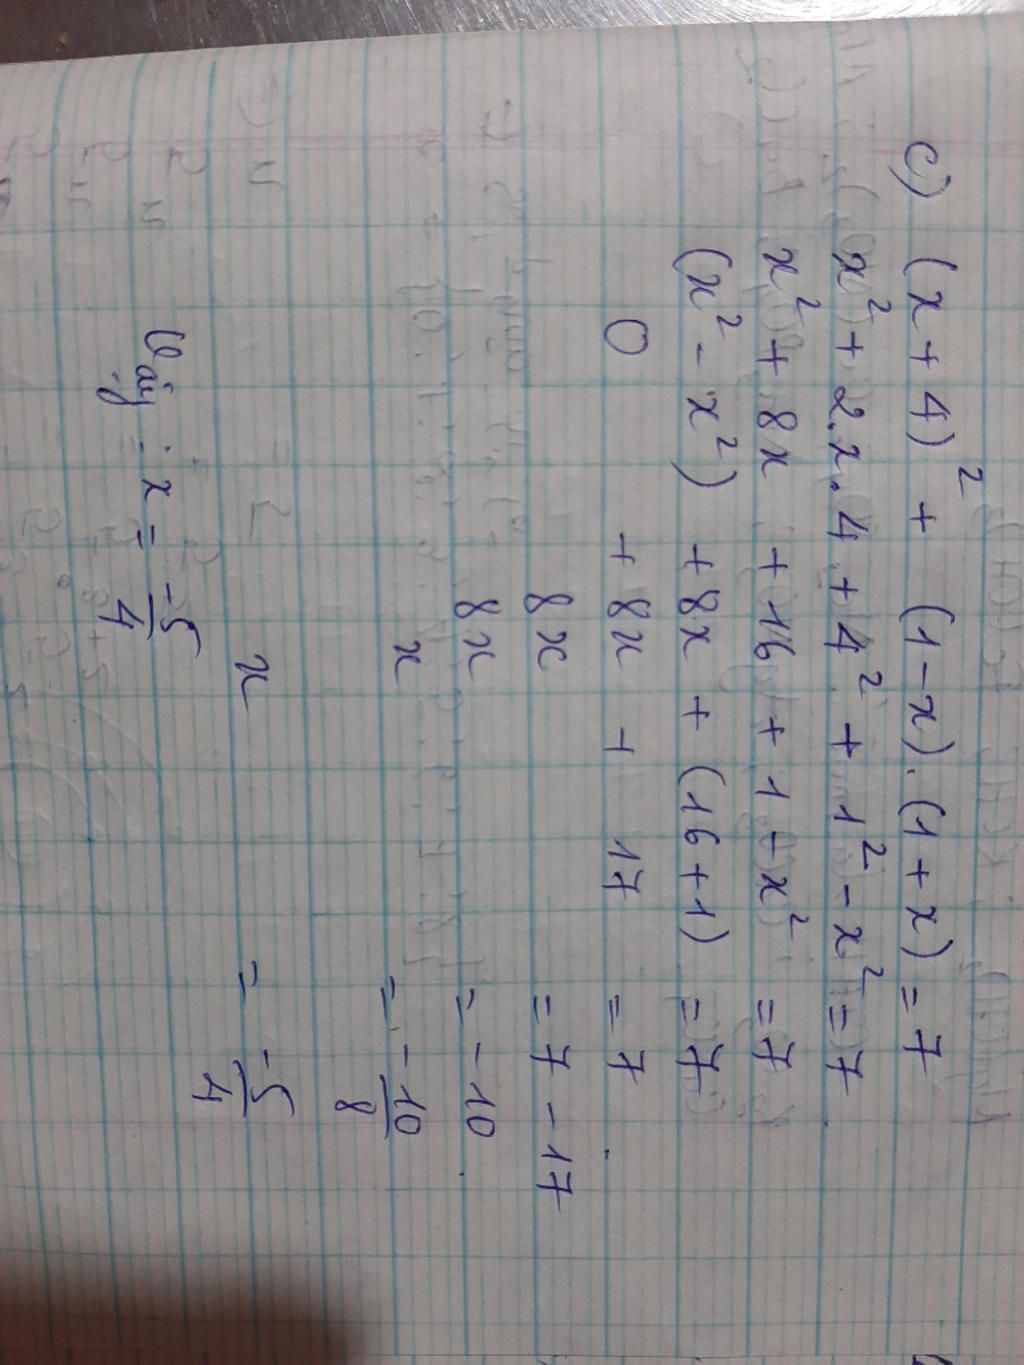 c) (x + 4)² + (1 - x).(1 + x) = 7
x² + 2.x.4 + 4² + 1² - x² = 7
x² + 8x + 16 + 1 - x² = 7
(x² - x²) + 8x + (16 + 1) = 7
0 + 8x + 17 = 7
8x = 7 - 17
8x = -10
x = -10/8
x = -5/4
Vậy : x = -5/4